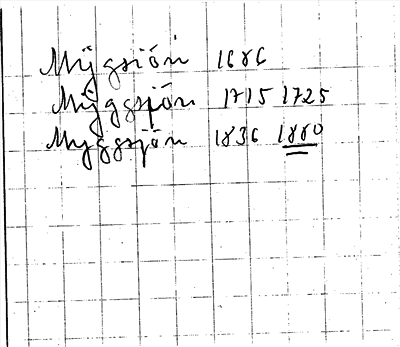 Mÿgsiön 1686
Mÿggsjön 1715 1725
Myggsjön 1836 1880